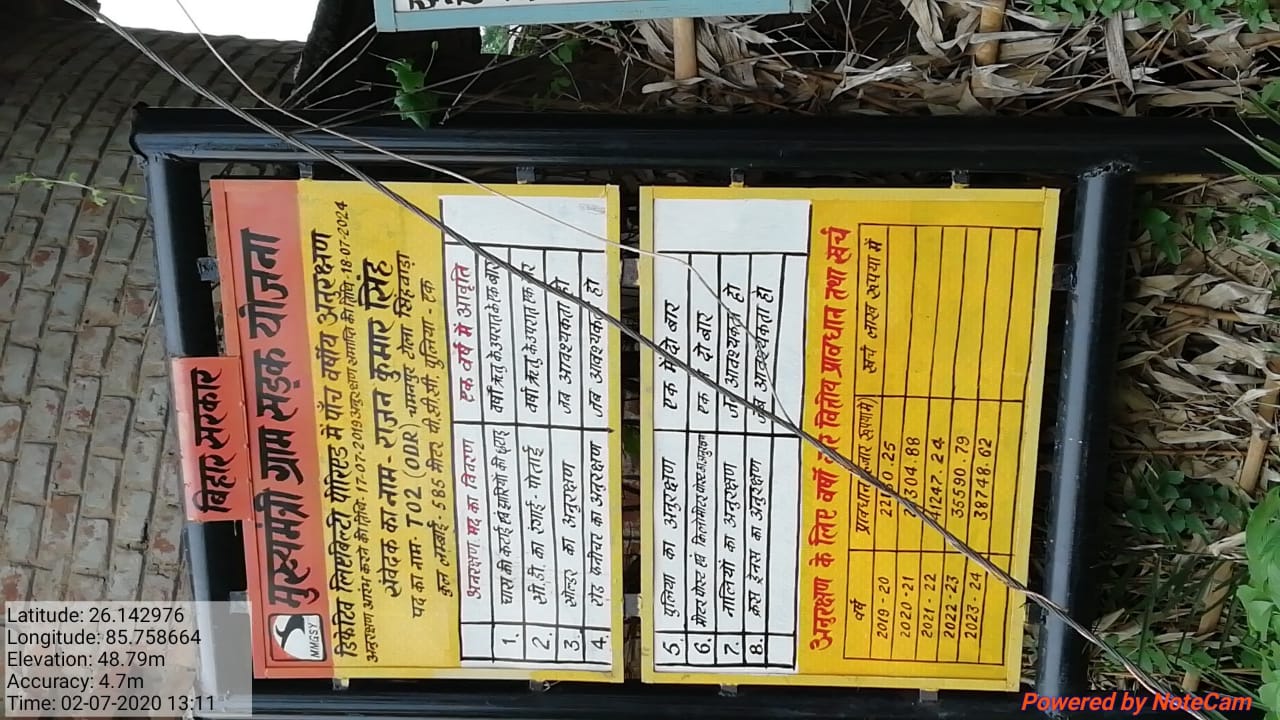 बिहार सरकार
मुख्यमंत्री ग्राम सड़क योजना
MMGSY
डिफेक्टिव लिएबिलिटी पीरिएड में पाँच वर्षीय अनुरक्षण
अनुरक्षण आरंभ करने की तिथि- 17-07-2019 अनुरक्षण समाप्ति की तिथि- 18-07-2024
संवेदक का नाम - राजन कुमार सिंह
पथ का नाम- T02 (ODR) चमनपुर टोला सिंहवाडा
कुल लम्बाई- 585 मीटर पी.सी.सी, पुलिया - एक
अनुरक्षण मद का विवरण एक वर्ष में आवृति
1. घास की कटाई एवं झाड़ियों की छटाई वर्षा ऋतु के उपरांत एक बार
2. सी.डी. का रंगाई - पोताई वर्षा ऋतु के उपरांत एक बार
3. सोल्डर का अनुरक्षण जब आवश्यकता हो
4. रोड फर्नीचर का अनुरक्षण जब आवश्यकता हो
5. पुलिया का अनुरक्षण एक में दो बार
6. मीटर पोस्ट एवं किलोमीटर पोस्ट का अनुरक्षण एक में दो बार
7. नालियों का अनुरक्षण जब आवश्यकता हो
8. क्रस ड्रेनस का अनुरक्षण जब आवश्यकता हो
अनुरक्षण के लिए वर्षो वार वितीय प्रवधान तथा खर्च
वर्ष प्रवधान(हजार रूपयामें) खर्च लाख रूपया में
2019-20 22130.25
2020-21 23304.88
2021-22 31247.24
2022-23 35590.79
2023-24 38748.62
Latitude: 26.142976
Longitude: 85.758664
Elevation: 48.79m
Accuracy: 4.7m
Time: 02-07-2020 13:11
Powered by NoteCam